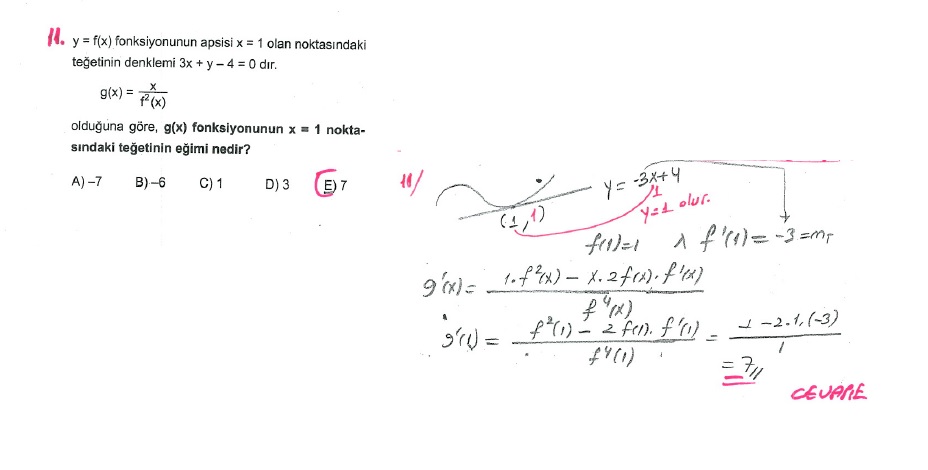 11. y = f(x) fonksiyonunun apsisi x = 1 olan noktasındaki
teğetinin denklemi 3x + y – 4 = 0 dır.
g(x) = x / f²(x)
olduğuna göre, g(x) fonksiyonunun x = 1 nokta-
sındaki teğetinin eğimi nedir?
A) –7 B) –6 C) 1 D) 3 E) 7
11/
y = -3x+4
1
y=1 olur.
(1,1)
f(1)=1 ∧ f'(1) = -3 = mT
g'(x) = 1.f²(x) – x.2f(x).f'(x) / f⁴(x)
g'(1) = f²(1) – 2f(1).f'(1) / f⁴(1) = 1 – 2.1.(-3) / 1
= 7//
CEVAP E